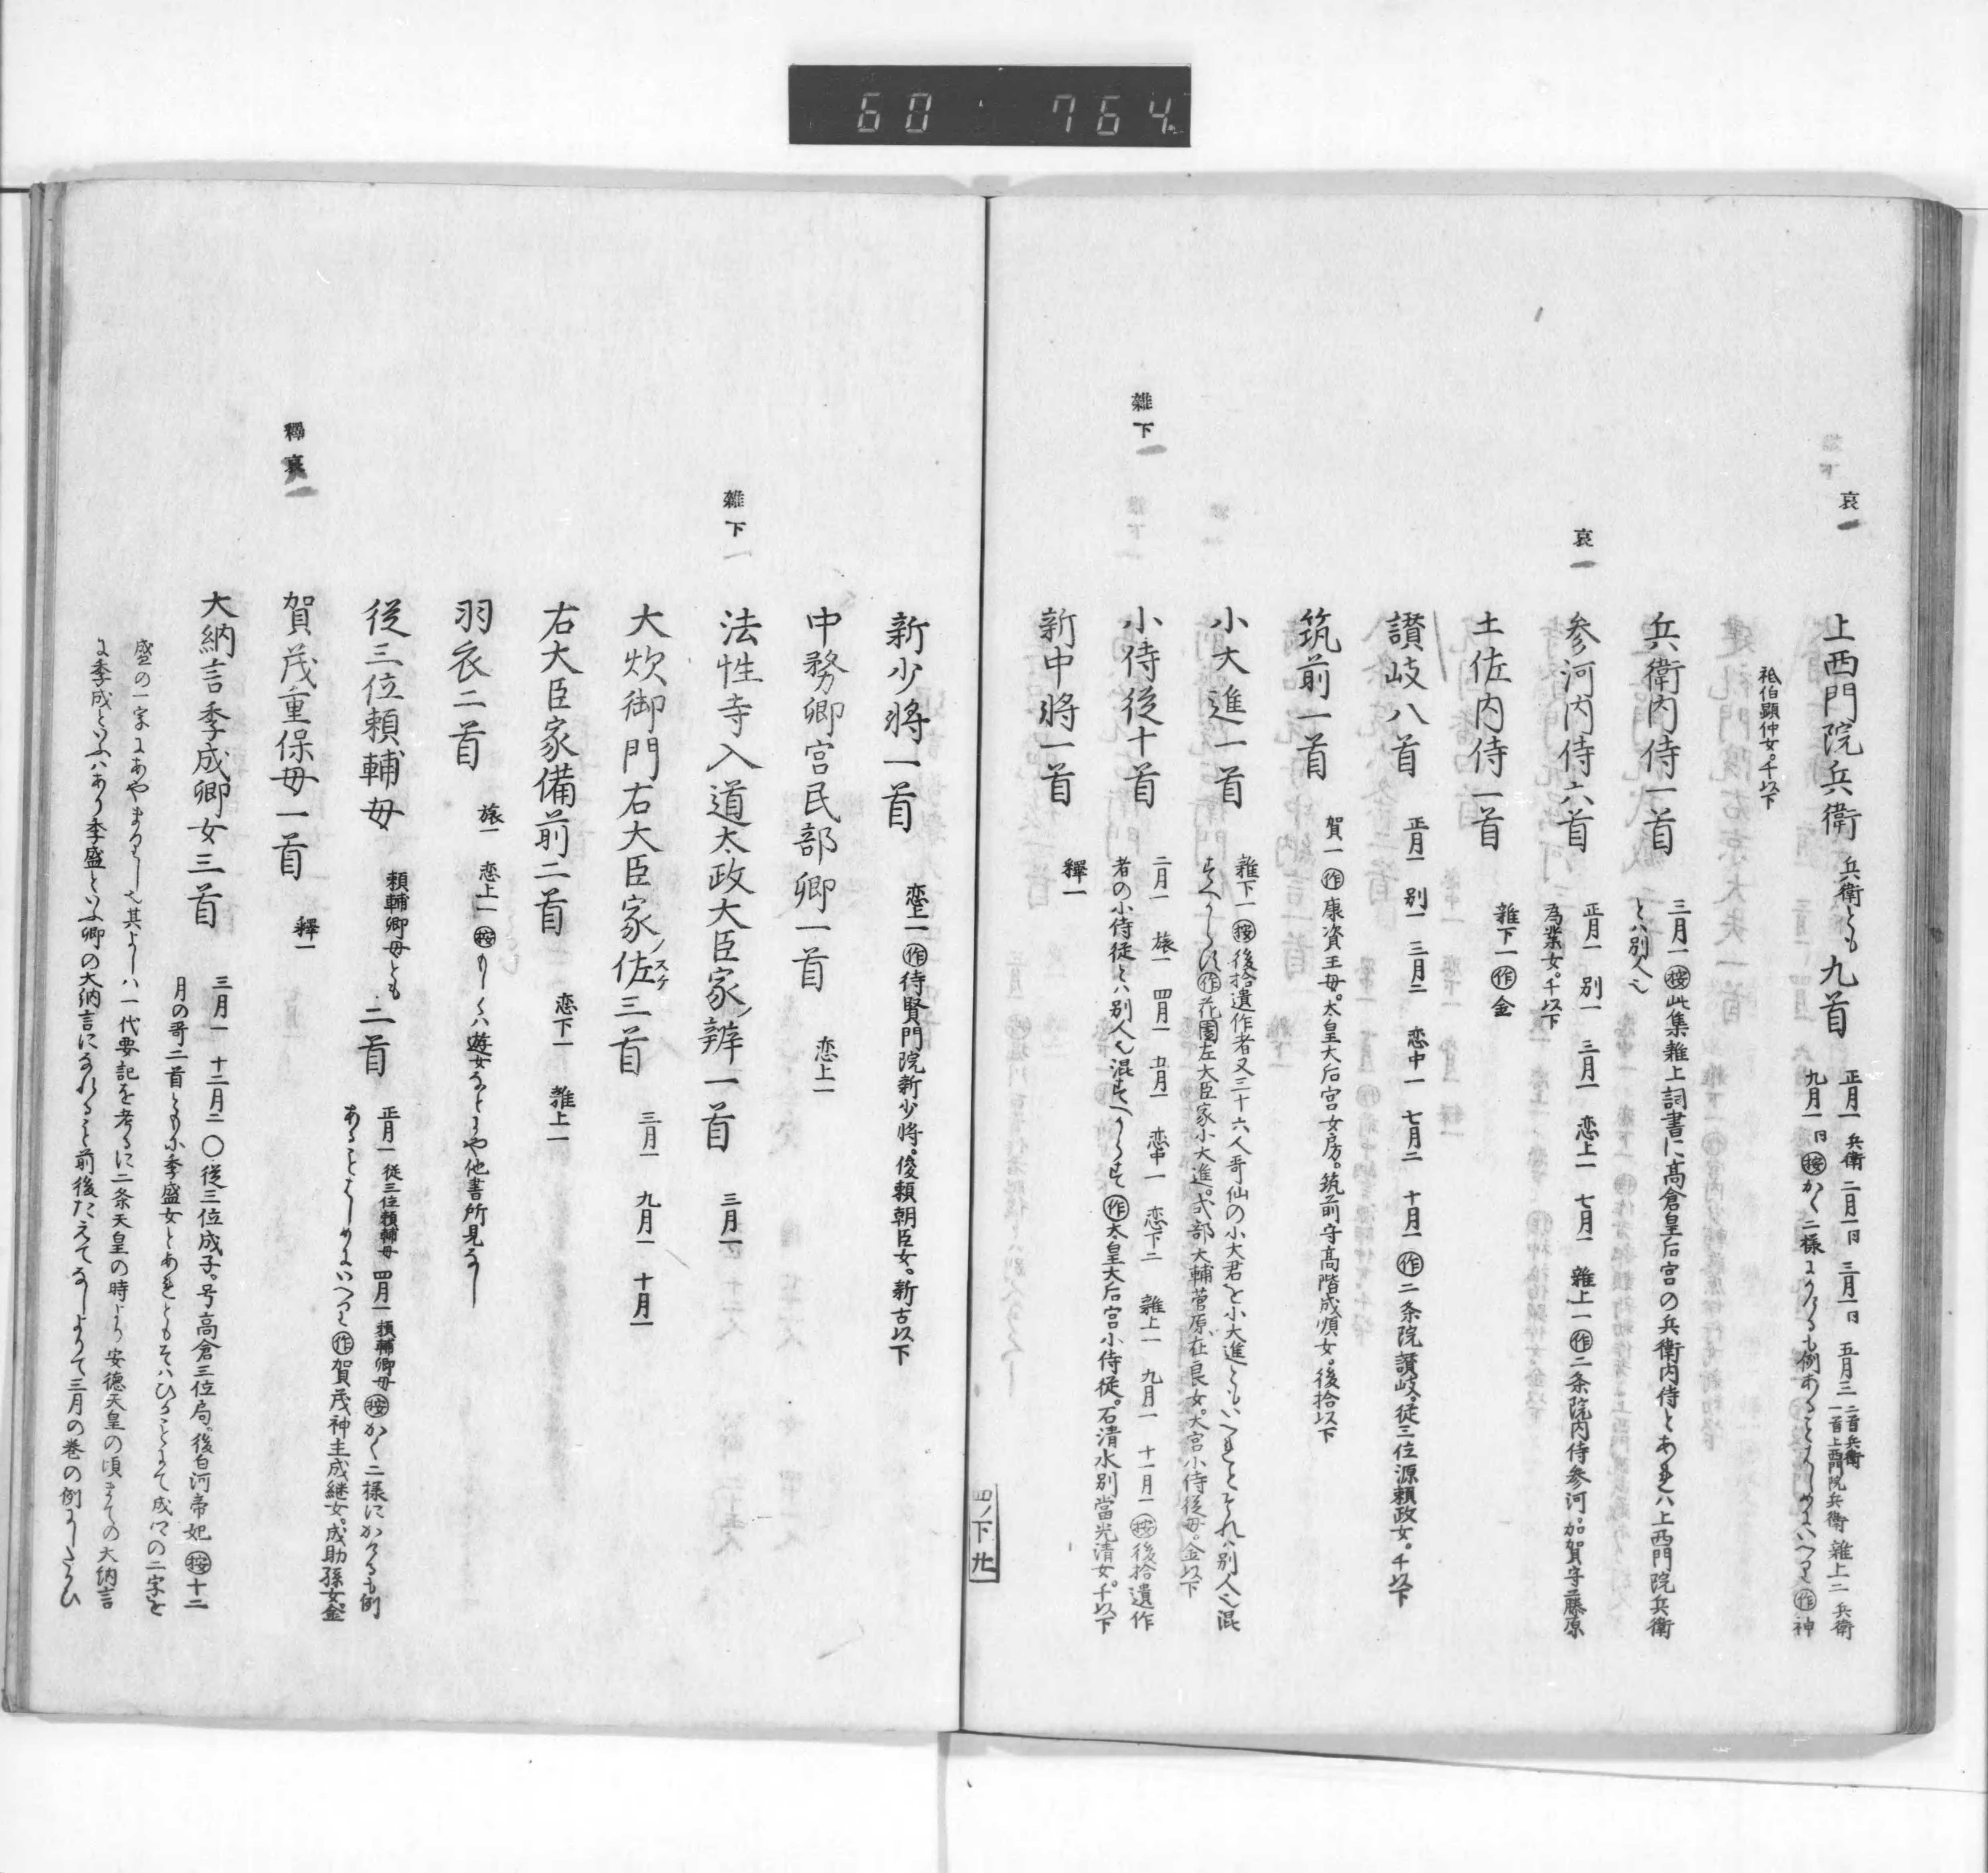 60 764
哀一
上西門院兵衛 兵衛とも 九首
正月一 兵衛 二月一 同 三月一 同 五月三 二首兵衛 一首上西門院兵衛 雜上二 兵衛
九月一 同 按 かく二様
作 神
祇伯顕仲女。千以下
兵衛内侍一首
三月一 按 此集雜上詞書に高倉皇后宮の兵衛内侍とあるハ上西門院兵衛
とハ別人也
哀一
参河内侍六首
正月一 別一 三月一 恋上一 七月一 雜上一 作 二条院内侍参河。加賀守藤原
為業女。千以下
土佐内侍一首
雜下一 作 金
讃岐八首
正月一 別一 三月二 恋中一 七月二 十月一 作 二条院讃岐。従三位源頼政女。千以下
筑前一首
賀一 作 康資王母。太皇大后宮女房。筑前守高階成順女。後拾以下
小大進一首
雜下一 按 後拾遺作者又三十六人哥仙の小大君を小大進ともいへれとそれハ別人也混
すへからす 作 花園左大臣家小大進。式部大輔菅原在良女。大宮小侍従母。金以下
雜下一
小侍従十首
二月一 旅一 四月一 五月一 恋中一 恋下二 雜上一 九月一 十一月一 按 後拾遺作
者の小侍従とハ別人也混すへからす 作 太皇大后宮小侍従。石清水別當光清女。千以下
新中将一首
釋一
四ノ下 廿
新少将一首
恋上一 作 待賢門院新少将。俊頼朝臣女。新古以下
中務卿宮民部卿一首
恋上一
雜下一
法性寺入道太政大臣家ノ辨一首
三月一
大炊御門右大臣家ノ佐スケ三首
三月一 九月一 十月一
右大臣家備前二首
恋下一 雜上一
羽衣二首
旅一 恋上一 按 もしくハ遊女なとにや他書所見なし
従三位頼輔母 頼輔卿母とも 二首
正月一 従三位頼輔母 四月一 頼輔卿母 按 かく二様にかけるも例
作 賀茂神主成継女。成助孫女。金
釋 哀一
賀茂重保母一首
釋一
大納言季成卿女三首
三月一 十二月二 〇 従三位成子。号高倉三位局。後白河帝妃 按 十二
月の哥二首とも小季盛女とあれともそハひかことにて成ハの二字を
盛の一字にあやまるなり
一代要記を考るに二条天皇の時より安徳天皇の頃まての大納言
に季成といふハあり季盛といふ卿の大納言になれること前後たえてなしよりて三月の巻の例に